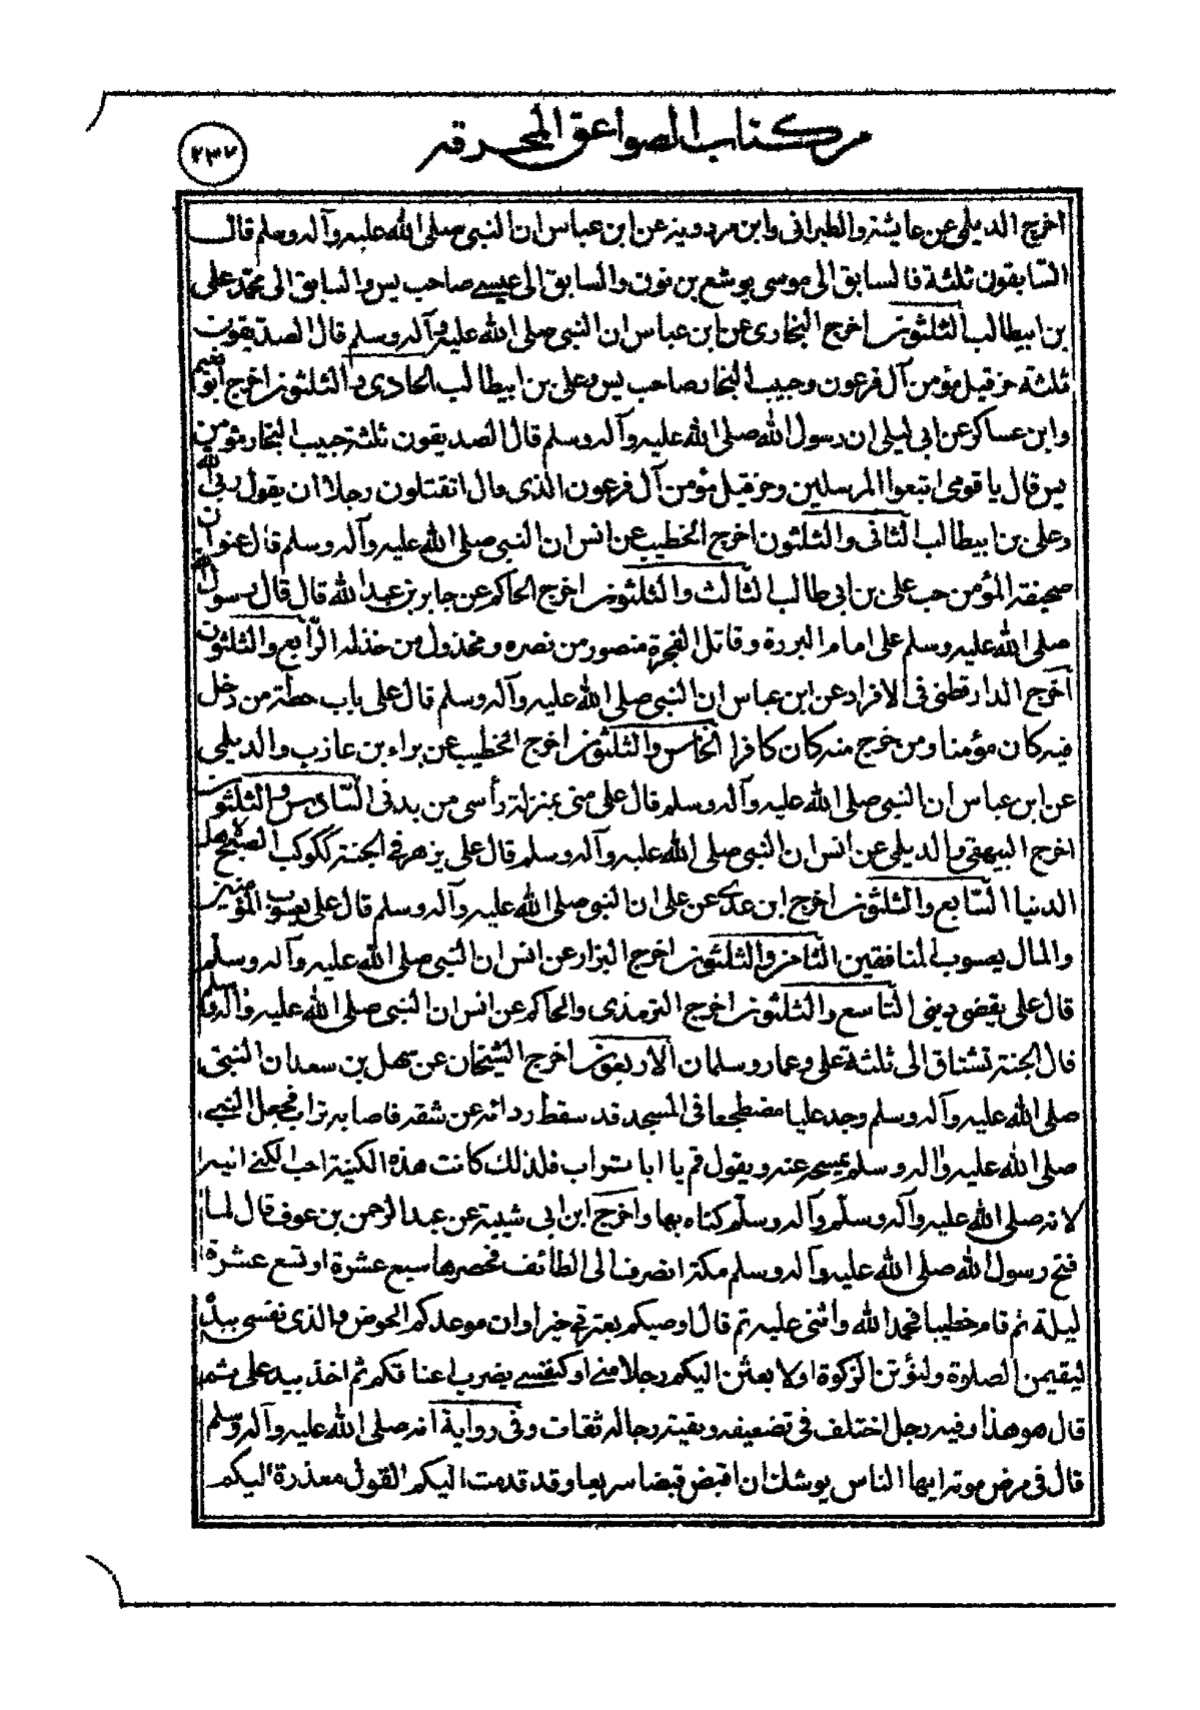 من كتاب الصواعق المحرقه
٢٣٧
اخرج الديلمى عن عايشة والطبرانى وابن مردويه عن ابن عباس ان النبى صلى الله عليه وآله وسلم قال
السّابقون ثلثة فالسابق الى موسى يوشع بن نون والسابق الى عيسى صاحب يس والسابق الى محمّد على
بن ابيطالب الثلثون اخرج البخارى عن ابن عباس ان النبى صلى الله عليه وآله وسلم قال الصديقون
ثلثة حزقيل مؤمن آل فرعون وحبيب النجار صاحب يس وعلى بن ابيطالب الحادى والثلثون اخرج ابو نعيم
وابن عساكر عن ابى ليلى ان رسول الله صلى الله عليه وآله وسلم قال الصديقون ثلثة حبيب النجار مؤمن
يس قال يا قومى اتبعوا المرسلين وحزقيل مؤمن آل فرعون الذى قال اتقتلون رجلا ان يقول ربى الله
وعلى بن ابيطالب الثانى والثلثون اخرج الخطيب عن انس ان النبى صلى الله عليه وآله وسلم قال عنوان
صحيفة المؤمن حب على بن ابى طالب الثالث والثلثون اخرج الحاكم عن جابر بن عبد الله قال قال رسول الله
صلى الله عليه وسلم على امام البررة وقاتل الفجرة منصور من نصره ومخذول من خذله الرّابع والثلثون
اخرج الدارقطنى فى الافراد عن ابن عباس ان النبى صلى الله عليه وآله وسلم قال على باب حطة من دخل
فيه كان مؤمنا ومن خرج منه كان كافرا الخامس والثلثون اخرج الخطيب عن براء بن عازب والديلمى
عن ابن عباس ان النبى صلى الله عليه وآله وسلم قال على منى بمنزلة رأسى من بدنى السّادس والثلثون
اخرج البيهقى والديلمى عن انس ان النبى صلى الله عليه وآله وسلم قال على يزهر فى الجنة ككوكب الصبح لاهل
الدنيا السّابع والثلثون اخرج ابن عدى عن على ان النبى صلى الله عليه وآله وسلم قال على يعسوب المؤمنين
والمال يعسوب المنافقين الثامن والثلثون اخرج البزار عن انس ان النبى صلى الله عليه وآله وسلم
قال على يقضى دينى التاسع والثلثون اخرج الترمذى والحاكم عن انس ان النبى صلى الله عليه وآله وسلم
قال الجنة تشتاق الى ثلثة على وعمار وسلمان الاربعون اخرج الشيخان عن سهل بن سعد ان النبى
صلى الله عليه وآله وسلم وجد عليا مضطجعا فى المسجد قد سقط ردائه عن شقه فاصابه تراب فجعل النبى
صلى الله عليه وآله وسلم يمسحه عنه ويقول قم يا ابا تراب فلذلك كانت هذه الكنية احب الكنى اليه
لانه صلى الله عليه وآله وسلّم وآله وسلّم كناه بها واخرج ابن ابى شيبة عن عبد الرحمن بن عوف قال لما
فتح رسول الله صلى الله عليه وآله وسلم مكة انصرف الى الطائف فحصرها سبع عشرة او تسع عشرة
ليلة ثم قام خطيبا فحمد الله واثنى عليه ثم قال اوصيكم بعترتى خيرا وان موعدكم الحوض والذى نفسى بيده
ليقيمن الصلوة ولتؤتن الزكوة او لابعثن اليكم رجلا منى او كنفسى يضرب اعناقكم ثم اخذ بيد على ثم
قال هو هذا وفيه رجل اختلف فى تضعيفه وبقية رجاله ثقات وفى رواية انه صلى الله عليه وآله وسلم
قال فى مرض موته ايها الناس يوشك ان اقبض قبضا سريعا وقد قدمت اليكم القول معذرة اليكم